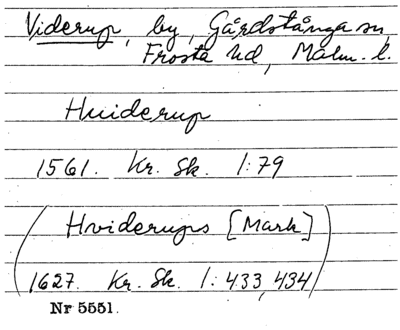 Viderup, by, Gårdstånga sn,
Frosta hd, Malm. l.
Huiderup
1561. Kr. Sk. 1:79
(Hviderups [Mark]
1627. Kr. Sk. 1:433,434)
Nr 5551.